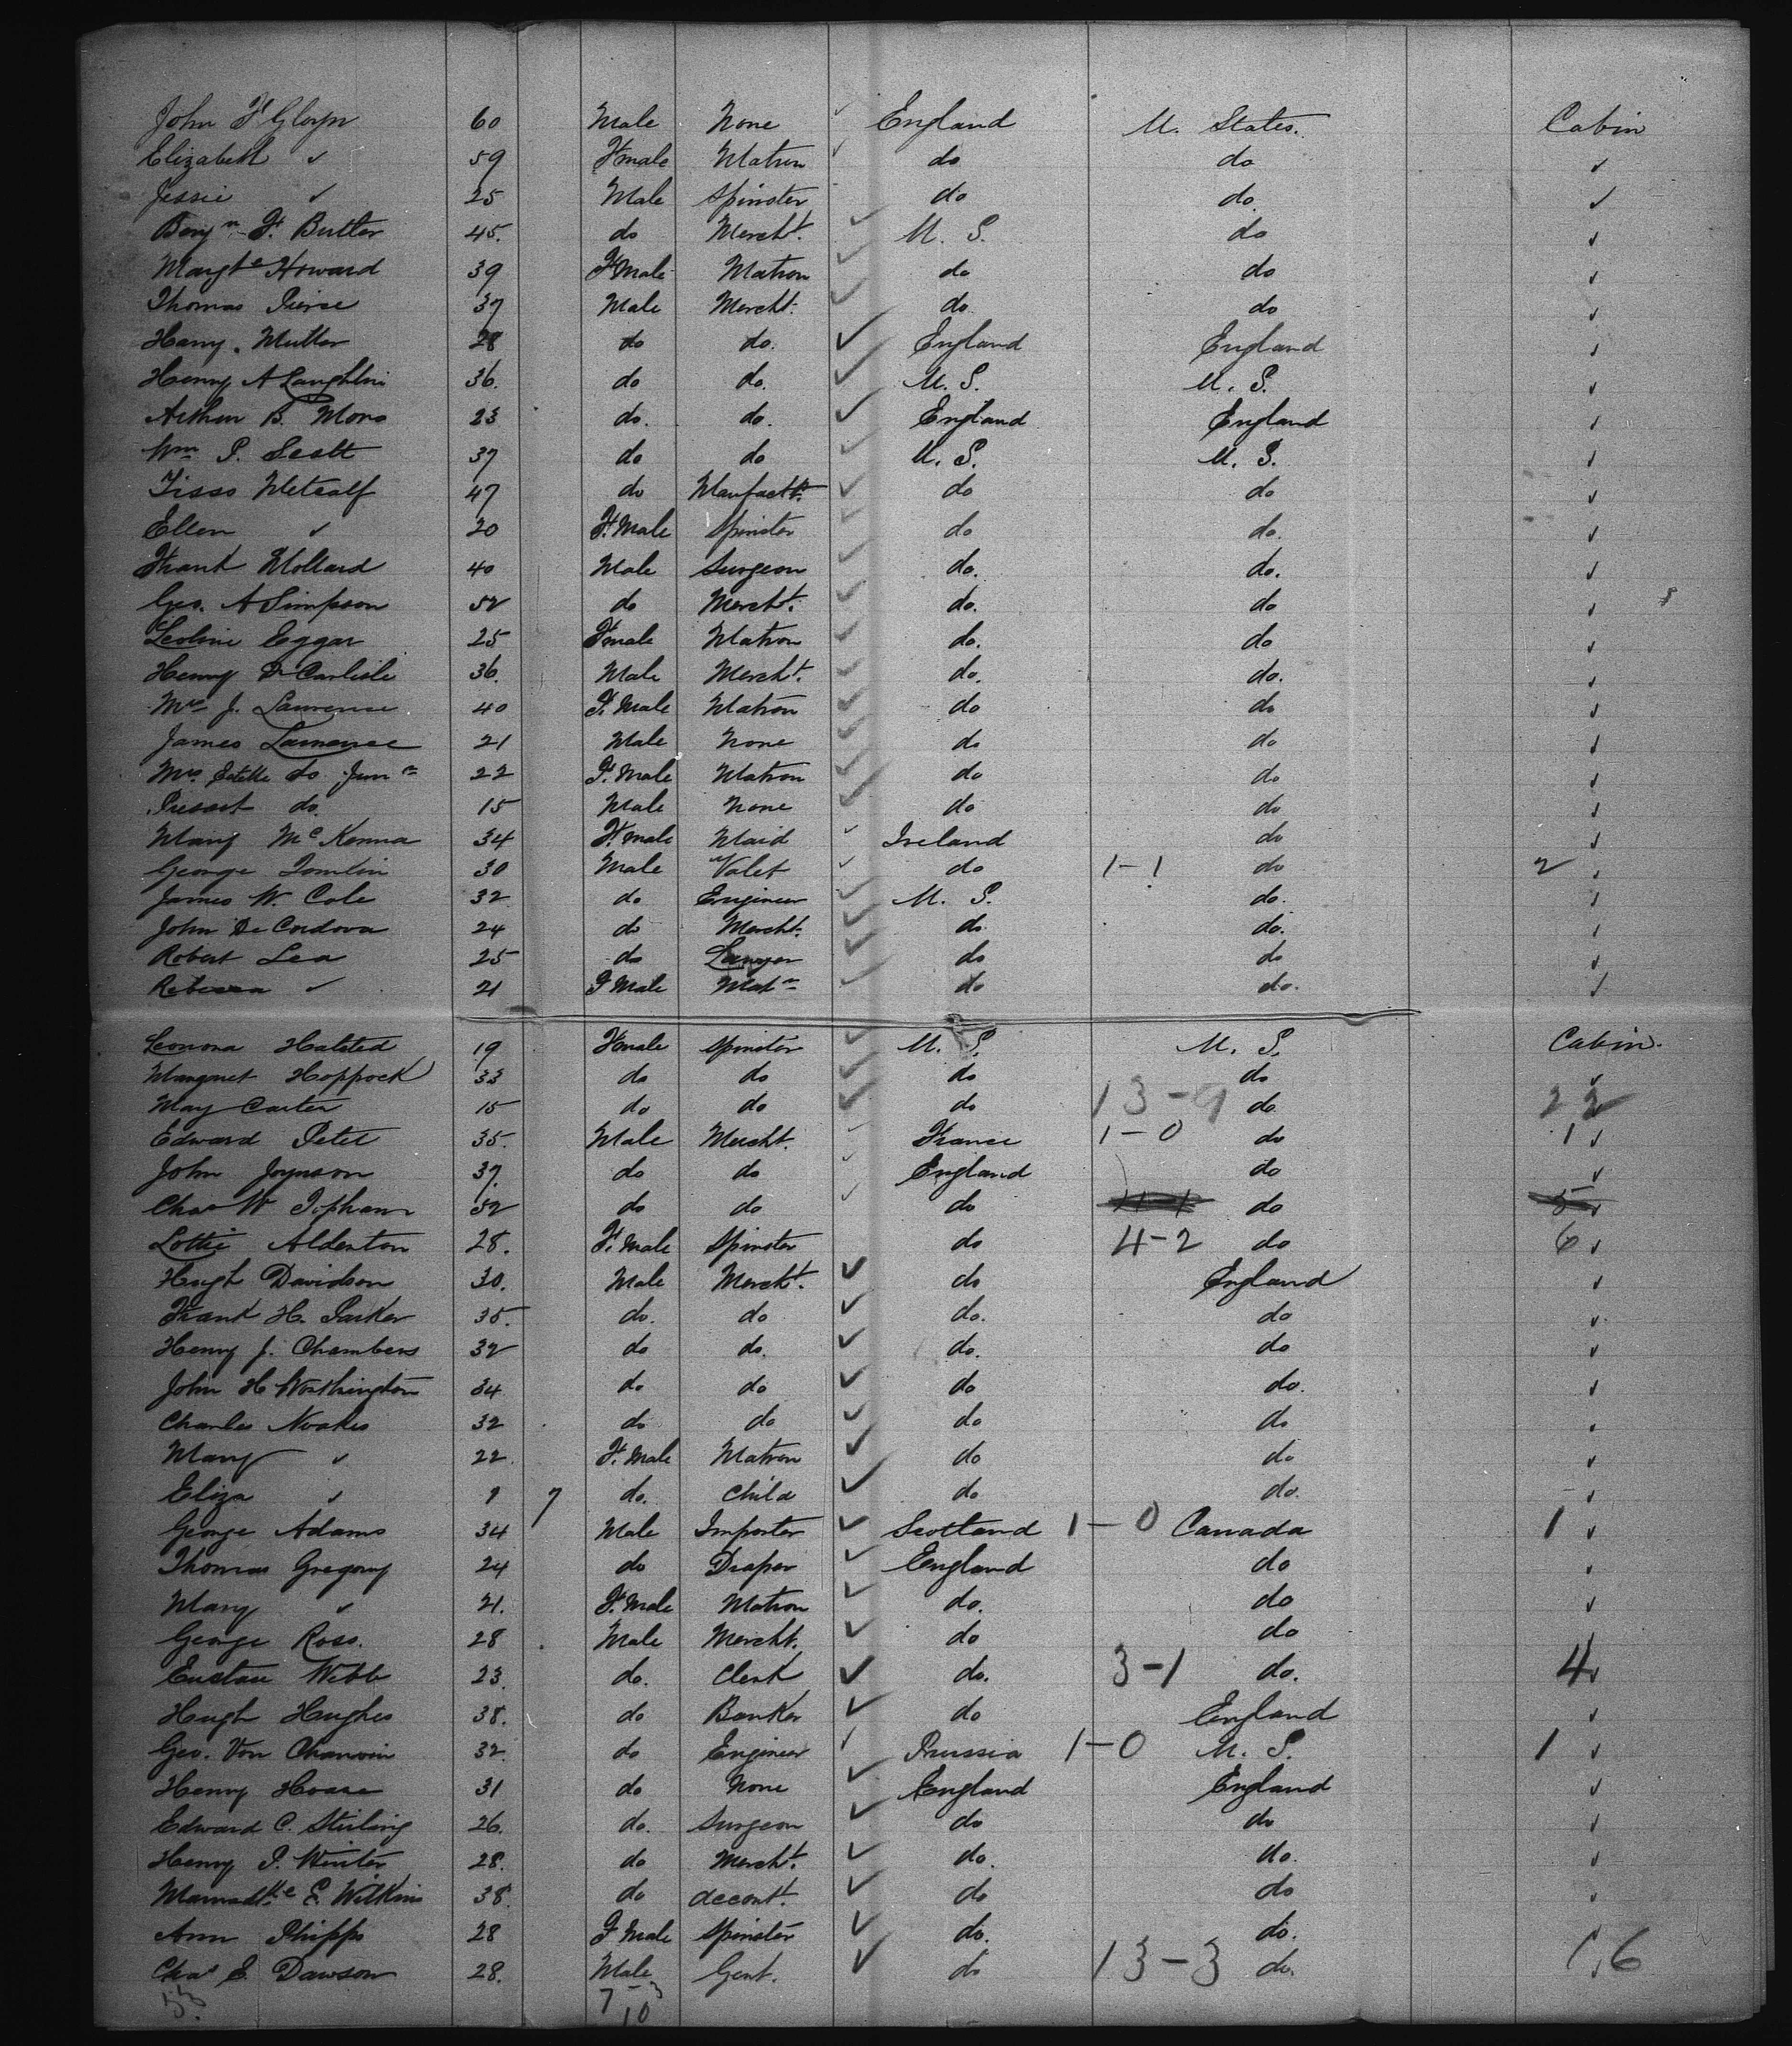 John F Gloyn 60 Male None England U. States. Cabin
Elizabeth " 59 Fmale Matron do do "
Jessie " 25 Male Spinster do do. "
Benjn F. Butler 45. do Mercht. U. S. do "
Margte Howard 39 F Male Matron do do "
Thomas Pierse 37 Male Mercht. do. do "
Harry Mutter 28 do do. England England "
Henry A Laughlin 36. do do. U. S. U. S. "
Arthur B. More 23 do. do. England England "
Wm P. Scott 37 do do U. S. U. S. "
Metcalf 47 do Manfactr. do do "
Ellen " 20 F. Male Spinster do do. "
Frank Mollard 40 Male Surgeon do. do. "
Geo. A Simpson 52 do Mercht. do. do "
Leoline Eggar 25 Fmale Matron do. do "
Henry D Carlisle 36. Male Mercht. do. do. "
Mrs J. Lawrence 40 F. Male Matron do do "
James Lawrence 21 Male None do do "
Mrs. Estelle do. Junr 22 F. Male Matron do do "
do. 15 Male None do do "
Mary McKenna 34 F. male Maid Ireland do "
George Tomlin 30 Male Valet do 1-1 do 2 "
James W. Cole 32 do Engineer U. S. do. "
John De Cordova 24 do Mercht. do. do. "
Robert Lea 25 do Lawyer do do "
Rebecca " 21 F Male Matn do do. "
Leonora Halsted 19 Fmale Spinster U. S. U. S. Cabin.
Margaret Hoppock 33 do do do do "
May Carter 15 do do do 13-9 do. 22 "
Edward Peter 35. Male Mercht. France 1-0 do 1 "
John Joynson 37. do do England do "
Chas W Topham 52 do do do do 5 "
Lottie Alderton 28. F. Male Spinster do 4-2 do 6 "
Hugh Davidson 30. Male Mercht. do England "
Frank H. Parker 35. do. do do. do "
Henry J. Chambers 32 do do. do. do "
John H Worthington 34 do do do do. "
Charles Noakes 32 do do do do "
Mary " 22. F. Male Matron do do "
Eliza " 7 do. Child do do. "
George Adams 34 Male Importer Scotland 1-0 Canada 1 "
Thomas Gregory 24 do Draper England do "
Mary " 21. F. Male Matron do. do "
George Ross. 28 Male Mercht. do do "
Eustace Webb 23. do. Clerk do. 3-1 do. 4 "
Hugh Hughes 38. do Banker do England "
Geo. Von Chauvin 32. do Engineer Prussia 1-0 U. S. 1 "
Henry Hoare 31 do None England England "
Edward C. Stirling 26. do. Surgeon do do "
Henry P. Winter 28. do Mercht. do. do. "
Marmadke E. Wilkins 38. do Accont. do do "
Ann Phipps 28 F Male Spinster do. do. "
Chas E. Dawson 28. Male Gent. do 13-3 do. 16 "
53. 7-3
10